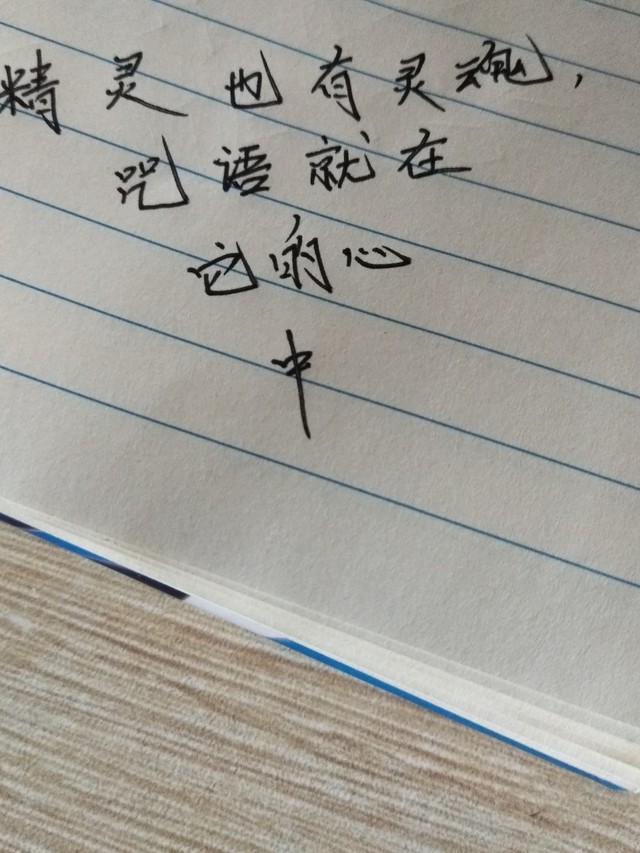 精灵也有灵魂，
咒语就在
它的心
中